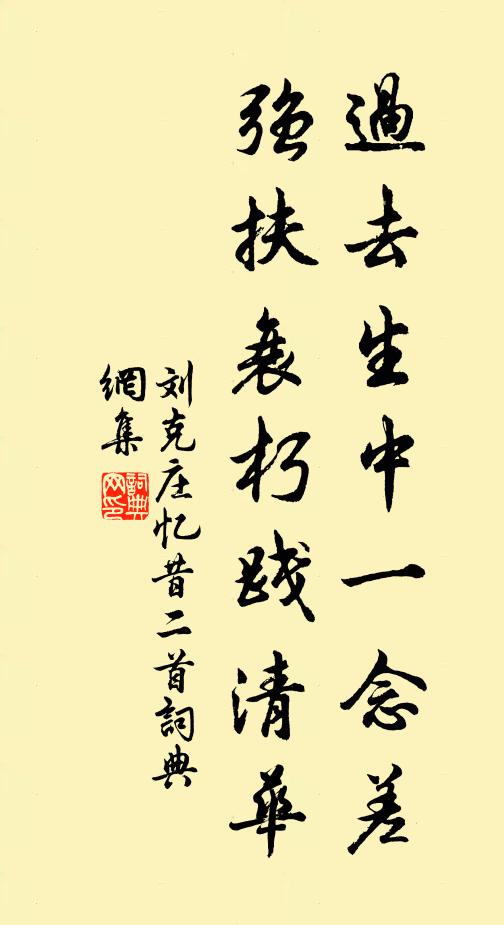 過去生中一念差
強扶衰朽践清華
刘克庄忆昔二首詞典
網集
詞典
网印